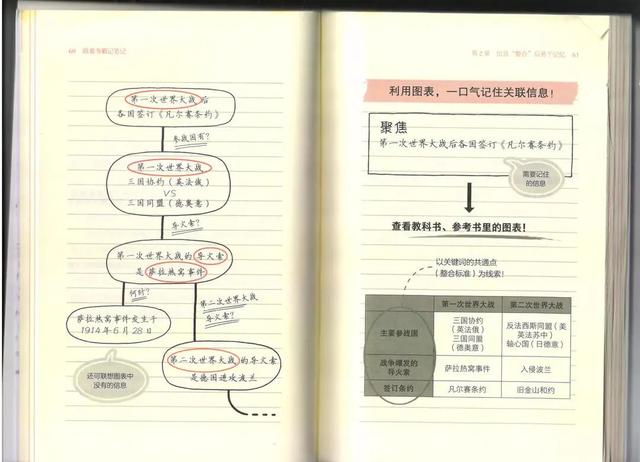 60 跟着考霸记笔记
第一次世界大战后
各国签订《凡尔赛条约》
参战国有?
第一次世界大战
三国协约(英法俄)
VS
三国同盟(德奥意)
导火索?
第一次世界大战的导火索
是萨拉热窝事件
何时?
萨拉热窝事件发生于
1914年6月28日
第二次世界大战
导火索?
还可联想图表中
没有的信息
第二次世界大战的导火索
是德国进攻波兰
第2章 信息“整合”后易于记忆 61
利用图表,一口气记住关联信息!
聚焦
第一次世界大战后各国签订《凡尔赛条约》
需要记住
的信息
查看教科书、参考书里的图表!
以关键词的共通点
(整合标准)为线索!
第一次世界大战 第二次世界大战
主要参战国
三国协约
(英法俄)
三国同盟
(德奥意)
反法西斯同盟(美
英法苏中)
轴心国(日德意)
战争爆发的
导火索
萨拉热窝事件 入侵波兰
签订条约 凡尔赛条约 旧金山和约